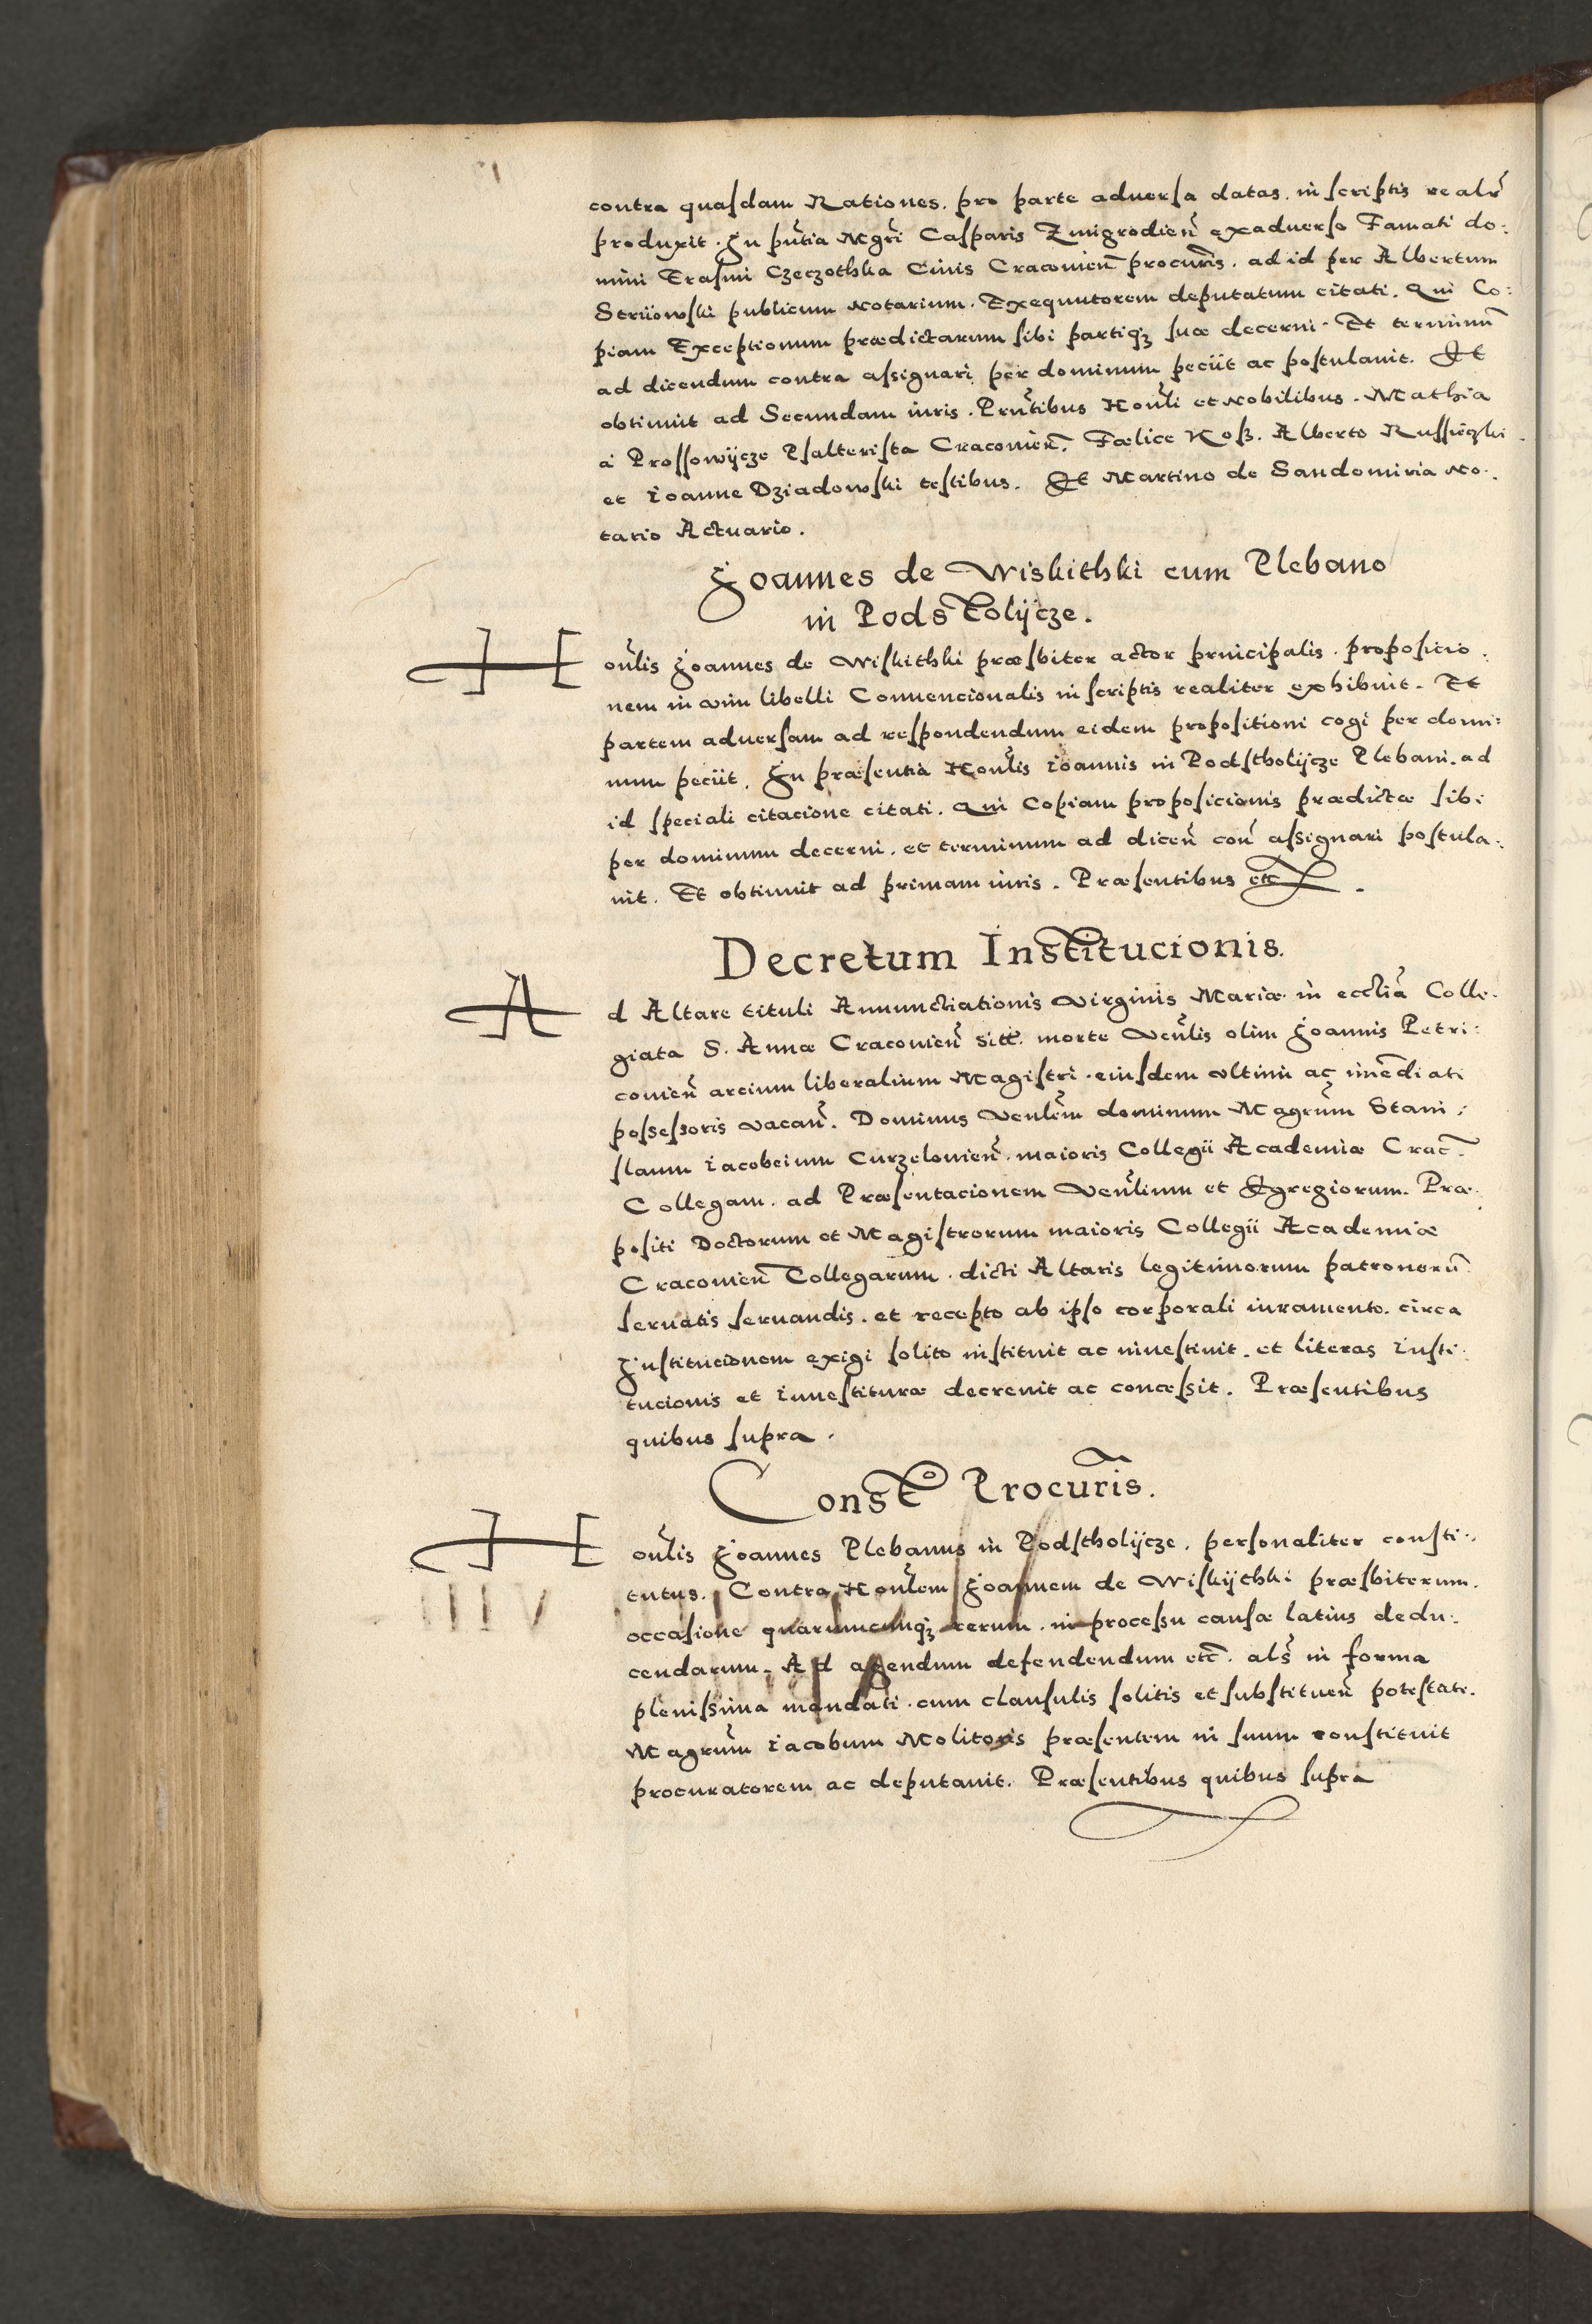 contra quasdam Rationes. pro parte aduersa datas. in scriptis realr̃
produxit. In pñtia Mgr̃i Casparis Zmigrodieñ exaduerso Famati do:
mini Erasmi Czeczothka Ciuis Cracouieñ procur̃is. ad id per Albertum
Striiowski publicum Notarium. Exequutorem deputatum citati. Qui Co:
piam Exceptionum prædictarum sibi partiq; suæ decerni. Et terminũ
ad dicendum contra assignari per dominum peciit ac postulauit. Et
obtinuit ad Secundam iuris. Prñtibus Hoñli et Nobilibus. Mathia
à Prossowijcze Psalterista Cracouieñ. Fœlice Koß. Alberto
et Ioanne Dziadowski testibus. Et Martino de Sandomiria No:
tario Actuario.
Joannes de Wiskithki cum Plebano
in Podstolijcze.
Hoñlis Joannes de Wiskithki præsbiter actor principalis. proposicio:
nem in vim libelli Conuencionalis in scriptis realiter exhibuit. Et
partem aduersam ad respondendum eidem propositioni cogi per domi:
num peciit. In præsentia Hoñlis Ioannis in Podstholijcze Plebani. ad
id speciali citacione citati. Qui Copiam proposicionis prædictæ sibi
per dominum decerni. et terminum ad diceñ coñ assignari postula:
uit. Et obtinuit ad primam iuris. Præsentibus etc.
Decretum Institucionis.
Ad Altare tituli Annunctiationis Virginis Mariæ in ecclia Colle:
giata S. Annæ Cracouieñ sitt. morte Veñlis olim Joannis Petri:
couieñ arcium liberalium Magistri. eiusdem vltimi ac im̃ediati
possessoris vacañ. Dominus Venlem dominum Magrum Stani:
slaum Iacobeium Curzelouieñ. maioris Collegii Academiæ Crac̃.
Collegam. ad Præsentacionem Veñlium et Egregiorum. Præ:
positi Doctorum et Magistrorum maioris Collegii Academiæ
Cracouieñ Collegarum. dicti Altaris legitimorum patronorũ.
seruatis seruandis. et recepto ab ipso corporali iuramento. circa
Institucionem exigi solito instituit ac inuestiuit. et literas Insti:
tucionis et Inuestituræ decreuit ac concessit. Præsentibus
quibus supra.
Constº Procur̃is.
Hoñlis Joannes Plebanus in Podstholijcze. personaliter consti:
tutus. Contra Hoñlem Joannem de Wiskijthki præsbiterum.
occasione quarumcunq; rerum. in processu causæ latius dedu:
cendarum. Ad agendum defendendum etc. als̃ in forma
plenissima mandati. cum clausulis solitis et substitueñ potestate.
Magrum Iacobum Molitoris præsentem in suum constituit
procuratorem ac deputauit. Præsentibus quibus supra